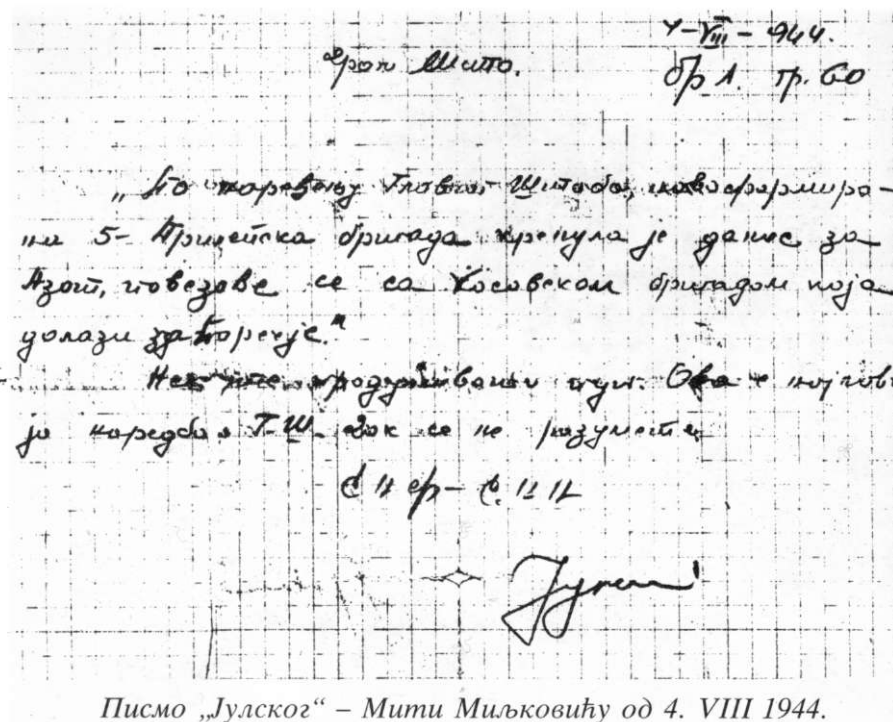 4-VIII-944.
Драги Мито.
бр 1. пр. 60
„По наређењу Главног Штаба, новоформира-
на 5- Прилепска бригада кренула је данас за
Азот, повезаве се са Косовском бригадом која
долази за Пореčје."
продужавати пут. Ова е најнови
ја наредба Г-Ш. док се не разумете
С Н ср- С. Н Н
Јулски
Писмо „Јулског“ – Мити Миљковићу од 4. VIII 1944.